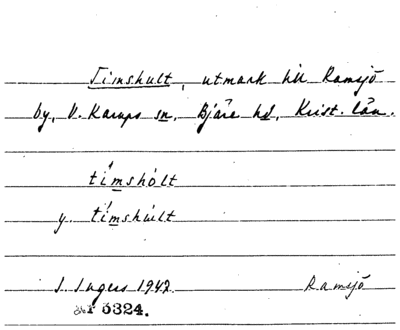 Timshult, utmark till Ramsjö
by, V. Karups sn, Bjäre hd, Krist. län.
tímshòlt
y. tímshùlt
I. Ingers 1942 Ramsjö
3324.